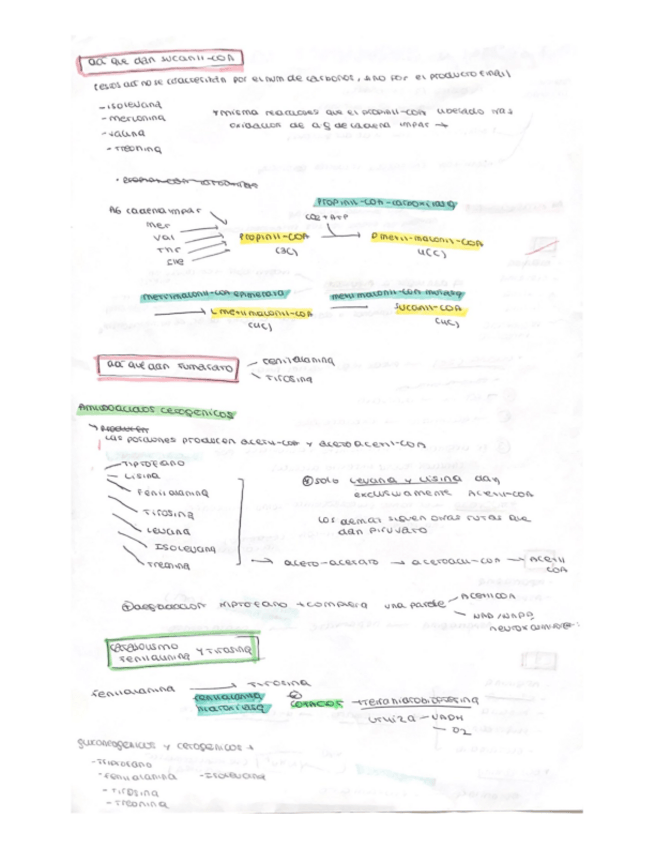 aa que dan succinil-CoA
(estos aa no se caracterizan por el num de carbonos, sino por el producto final)
- isoleucina
- metionina
- valina
- treonina
* misma reacciones que el propinil-CoA liberado tras
oxidacion de ag de cadena impar →
propinil-CoA-carboxilasa
AG cadena impar
CO2 + ATP
Met
Val
Thr
Ile
propinil-CoA
(3C)
D metil-malonil-CoA
(4C)
metilmalonil-CoA epimerasa
metilmalonil-CoA mutasa
L metilmalonil-CoA
(4C)
succinil-CoA
(4C)
aa que dan fumarato
- fenilalanina
- tirosina
Aminoacidos cetogenicos
Las porciones producen acetil-CoA y acetoacetil-CoA
- Triptofano
- Lisina
- Fenilalanina
- Tirosina
- Leucina
- Isoleucina
- Treonina
solo Leucina y Lisina dan
exclusivamente Acetil-CoA
Los demas siguen otras rutas que
dan piruvato
→ aceto-acetato → acetoacil-CoA → Acetil
CoA
degradacion triptofano → compleja una parte
Acetil CoA
NAD/NADP
Catabolismo
fenilalanina y Tirosina
fenilalanina → Tirosina
fenilalanina
hidroxilasa
cofactor → tetrahidrobiopterina
utiliza - NADH
- O2
gluconeogenicos y cetogenicos →
- Triptofano
- Fenilalanina - Isoleucina
- Tirosina
- Treonina